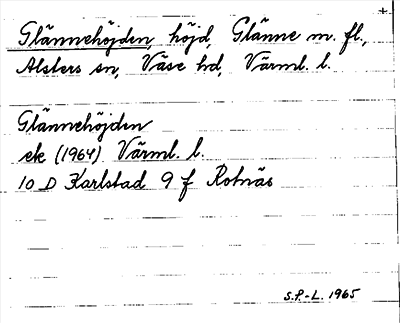 Glännehöjden, höjd, Glänne m. fl.,
Alsters sn, Väse hd, Värml. l.
Glännehöjden
ek (1964) Värml. l.
10 D Karlstad 9 f Rotnäs
S.P.-L. 1965